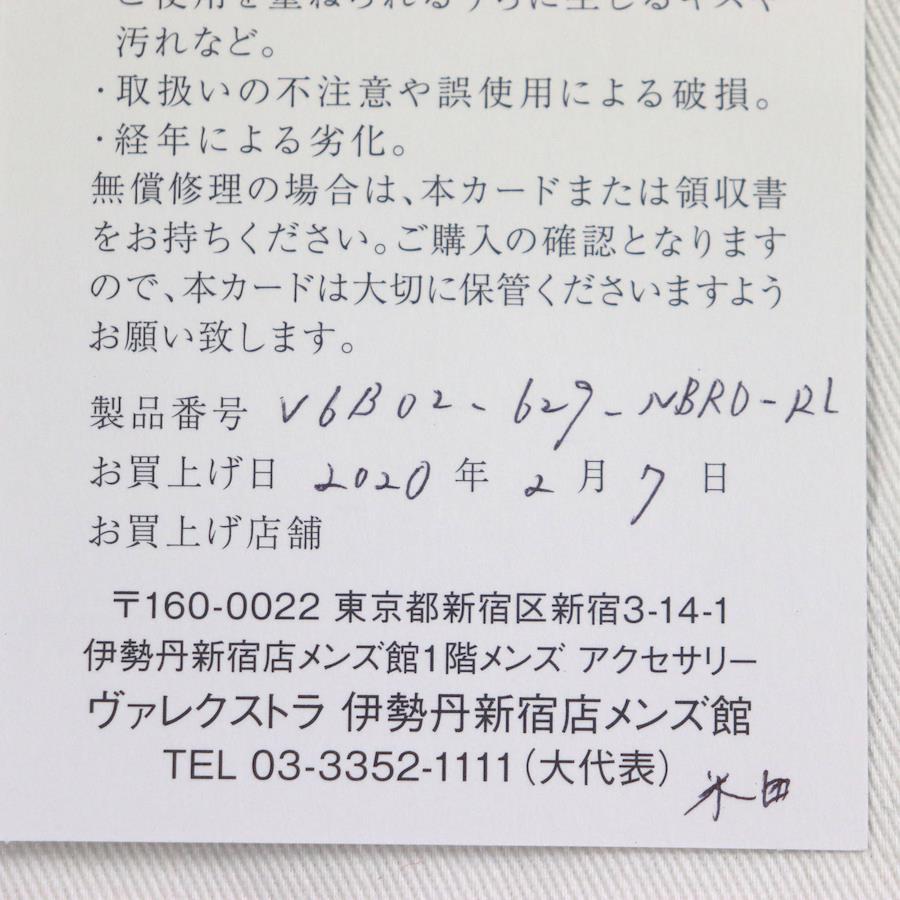 ご使用を重ねられるうちに生じるキズや
汚れなど。
・取扱いの不注意や誤使用による破損。
・経年による劣化。
無償修理の場合は、本カードまたは領収書
をお持ちください。ご購入の確認となります
ので、本カードは大切に保管くださいますよう
お願い致します。
製品番号 V6B02-629-NBRD-RL
お買上げ日 2020 年 2 月 7 日
お買上げ店舗
〒160-0022 東京都新宿区新宿3-14-1
伊勢丹新宿店メンズ館1階メンズ アクセサリー
ヴァレクストラ 伊勢丹新宿店メンズ館
TEL 03-3352-1111（大代表）
米田